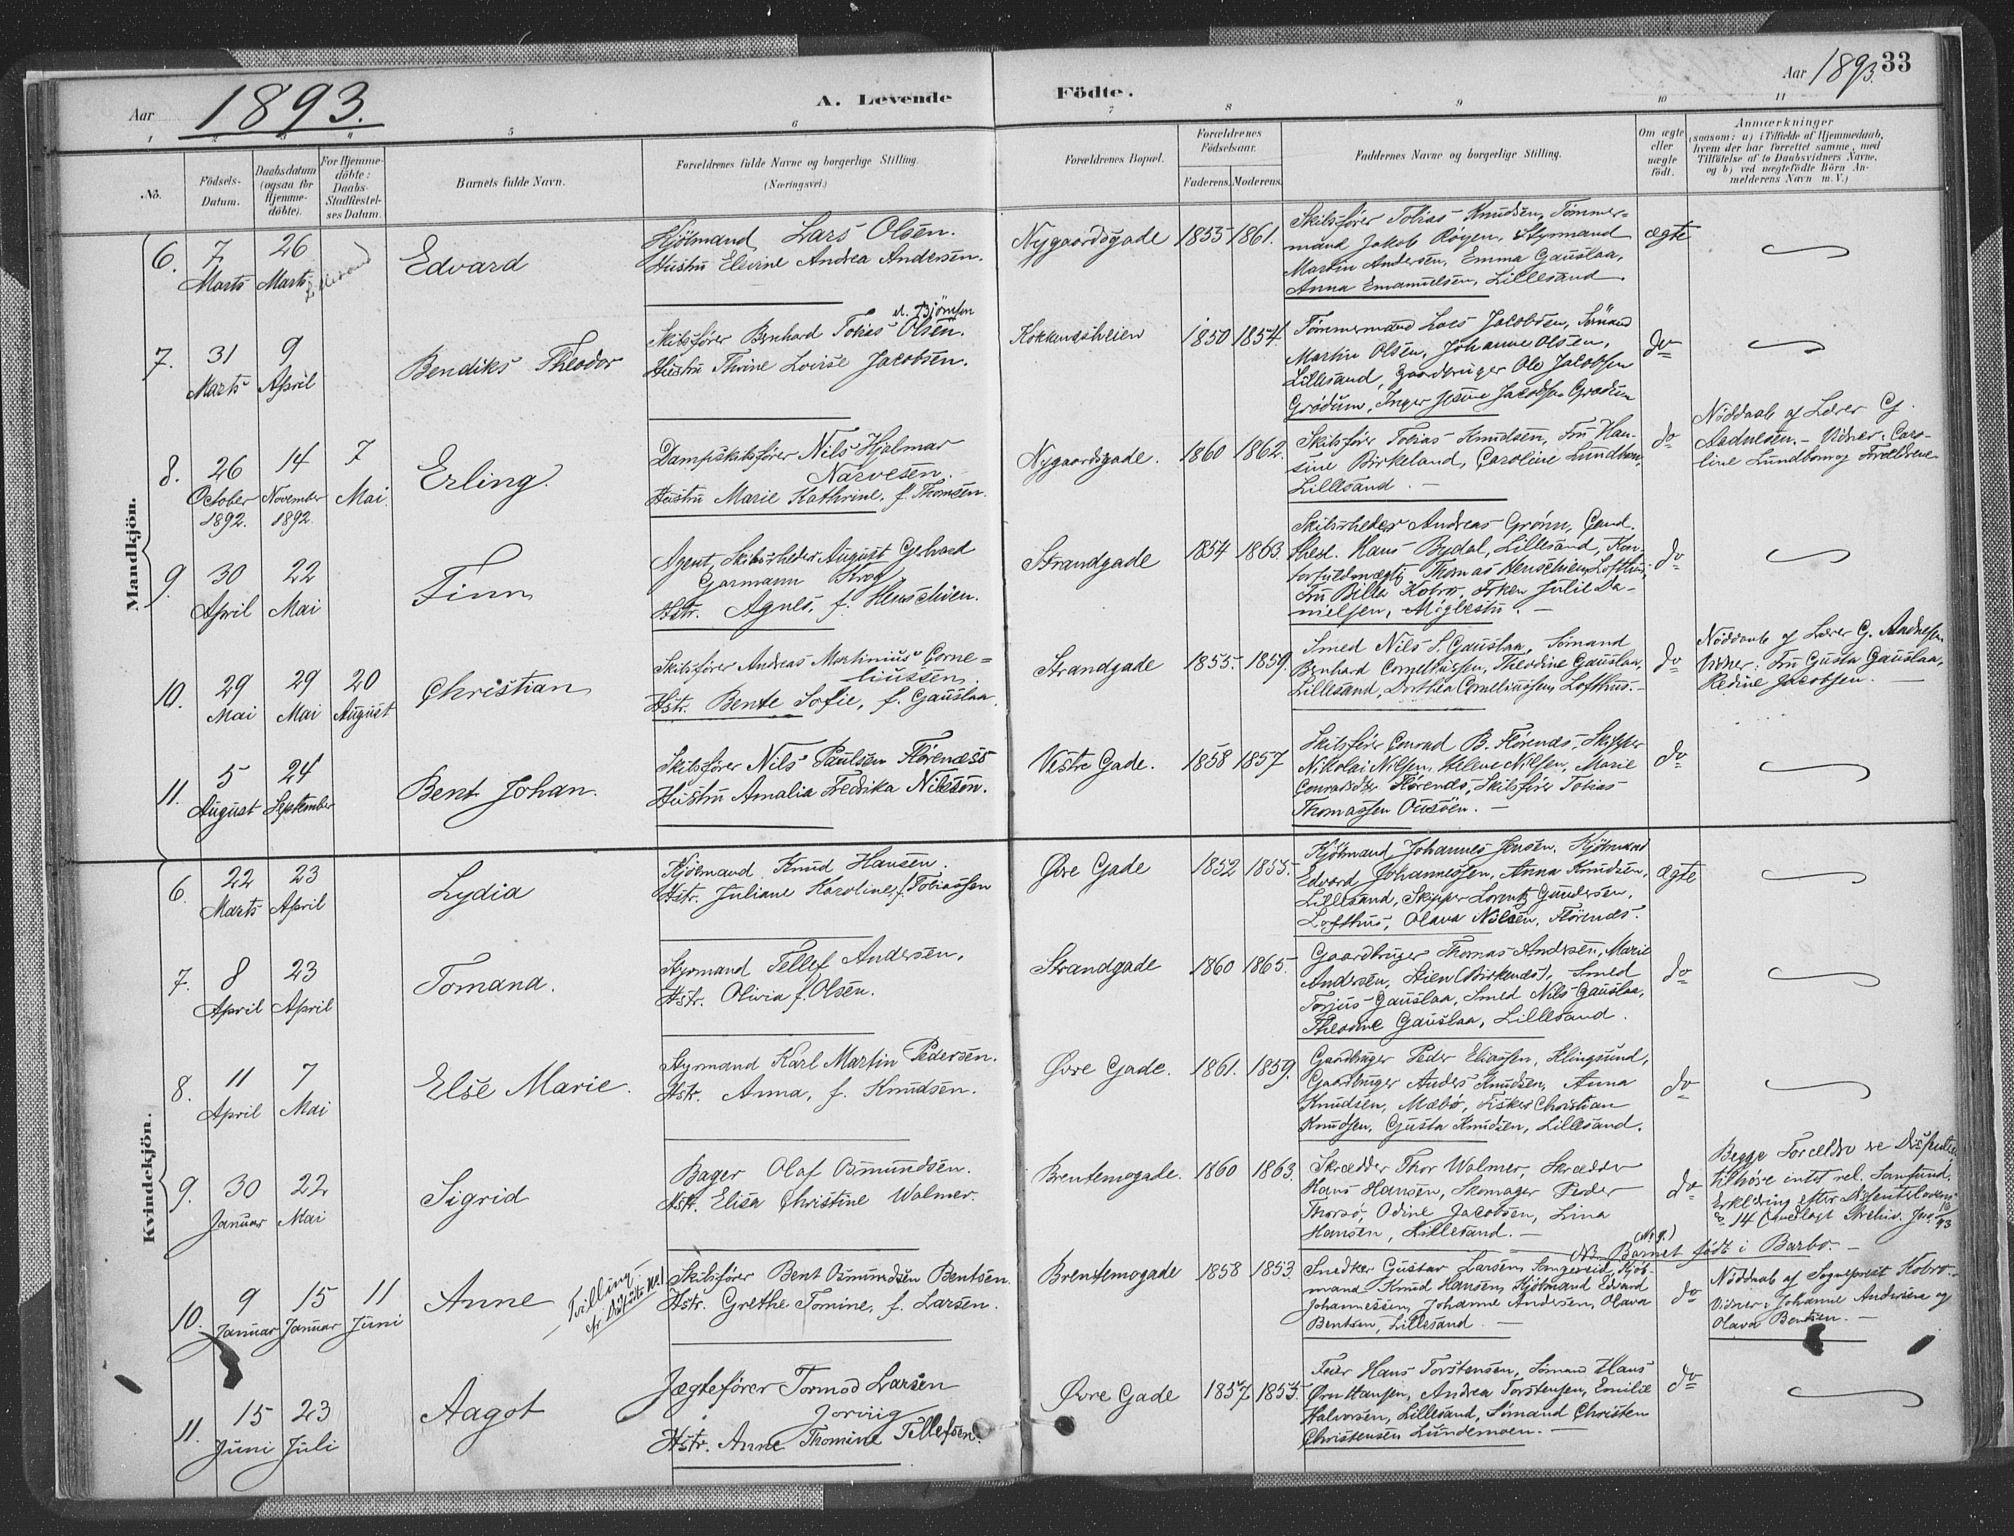 Aar 1893.
A. Levende
Födte.
Aar 1893.
33
1 2 3 4 5 6 7 8 9 10 11
No.
Födsels-
Datum.
Daabsdatum
(ogsaa for
Hjemme-
döbte).
For Hjemme-
döbte:
Daabs-
Stadfæstel-
ses Datum.
Barnets fulde Navn.
Forældrenes fulde Navne og borgerlige Stilling.
(Næringsvei.)
Forældrenes Bopæl.
Forældrenes
Födselsaar.
Faderens. Moderens.
Faddernes Navne og borgerlige Stilling.
Om ægte
eller
uægte
födt.
Anmærkninger
(saasom: a) i Tilfælde af Hjemmedaab,
hvem der har forrettet samme, med
Tilföielse af to Daabsvidners Navne,
og b) ved uægtefödte Börn An-
melderens Navn m. V.)
Mandkjön.
6.
7
Marts
26
Marts
Edvard
Hjólmand Lars Olsen.
Hustru Elevine Andrea Andersen.
Nygaardsgade
1855
1861.
Skibsfører Tobias Knudsen, Tømmer-
mand Jakob Røyen, Styrmand
Martin Andersen, Emma Gauslaa,
Anna Emanuelsen, Lillesand.
ægte
7.
31
Marts
9
April
Bendiks Theodor
Skibsfører Bernhard Tobias Olsen.
Hustru Thrine Lovise Jacobsen.
Kokkenesheien
1850
1854.
Tømmermand Lars Jacobsen, Sømand
Martin Olsen, Johanne Olsen,
Lillesand, Gaardbruger Ole Jacobsen
Grødum, Inger Jacobsen Grødum
do
8.
26
October
1892.
14
November
1892.
7
Mai.
Erling.
Dampskibsfører Nils Hjalmar
Narvesen.
Hustru Marie Kathrine, f. Thomsen.
Nygaardsgade.
1860
1862.
Skibsfører Tobias Knudsen, Fru Han-
sine Birkeland, Caroline Lundbom,
Lillesand. —
do
Nöddaab af Lærer G.
Aadnesen. – Vidner: Caro-
line Lundbom og Forældrene
9.
30
April
22
Mai
Finn
Agent, Skibsrheder August Gerhard
Garmann Krog
Hstr. Agnes, f. Henschien.
Strandgade
1854
1863.
Skibsrheder Andreas Grønn, Cand.
theol. Hans Bydal, Lillesand, Kon-
torfuldmægtig Thomas Henschien, Lofthus,
Fru Billa Kobro, Frøken Julie Da-
nielsen, Møglestu. —
do
10.
29
Mai
29
Mai
20
August
Christian
Skibsfører Andreas Martinius Corne-
liussen.
Hstr. Bente Sofie, f. Gauslaa.
Strandgade
1855.
1859.
Smed Nils S. Gauslaa, Sømand
Bernhard Corneliussen, Theodine Gauslaa,
Lillesand, Dorthea Corneliussen, Lofthus. —
do
Nöddaab af Lærer G. Aadnesen
Vidner: Fru Gusta Gauslaa,
Redine Jacobsen. —
11.
5
August
24
September
Bent Johan.
Skibsfører Nils Paulsen Flørenæss
Hustru Amalia Fredrika Nilssen.
Vestre Gade.
1858
1857
Skibsfører Conrad B. Flørenæs, Skipper
Nikolai Nilsen, Helene Nilsen, Marie
Flørenæs, Skibsfører Tobias
Thomassen. —
do
Kvindekjön.
6.
22
Marts
23
April
Lydia
Kjölmand Knud Hansen.
Hstr. Juliane Karoline, f. Tobiassen
Øvre Gade
1852
1855.
Kjölmand Johannes Jensen, Kjölmand
Edvard Johannessen, Anna Knudsen,
Lillesand, Skipper Lorentz Gundersen,
Lofthus, Olava Nilsen, Flørenæs.
Ægte
7.
8
April
23
April
Tomana.
Styrmand Tellef Andersen.
Hstr. Olivia f. Olsen.
Strandgade
1860
1865.
Gaardbruger Thomas Andersen, Marie
Andersen, Stien (Birkenæs), Smed
Torjus Gauslaa, Smed Nils Gauslaa,
Theodine Gauslaa, Lillesand.
do
8.
11
April
7
Mai
Else Marie.
Styrmand Karl Martin Pedersen.
Hstr. Anna, f. Knudsen.
Øvre Gade.
1861.
1859.
Gaardbruger Peder Eliassen, Klingsund,
Gaardbruger Anders Knudsen, Anna
Knudsen, Mæbø, Fisker Christian
Knudsen, Gusta Knudsen, Lillesand.
do
9.
30
Januar
22
Mai
Sigrid
Bager Olaf Osmundsen.
Hstr. Elisa Christine Walmer.
Brentemogade.
1860
1863.
Skrædder Thor Walmer, Skrædder
Hans Hansen, Skomager Peder
Thorsø, Odine Jacobsen, Lina
Hansen, Lillesand. —
do
Begge Forældre ere Dissentere
tilhøre intet rel. Samfund.
Erklæring efter Dissenterlovens
§ 14 fremlagt
(No. 9.)
NB. Barnet født i Barbo. —
10.
9
Januar
15
Januar
11
Juni
Anne
Tvilling
Skibsfører Bent Osmundsen Bentsen.
Hstr. Grethe Tomine, f. Larsen.
Brentemogade
1858
1853.
Snedker Gustav Larsen, Sangereid, Kjöl-
mand Knud Hansen, Kjölmand Edvard
Johannessen, Johanne Andersen, Olava
Bentsen, Lillesand. —
do
Nöddaab af Sogneprest Kobro. –
Vidner: Johanne Andersen og
Olava Bentsen. —
11.
15
Juni
23
Juli
Aagot
Jægtefører Tormod Larsen
Jorvig
Hstr. Anne Thomine Tellefsen.
Øvre Gade
1857.
1855.
Feier Hans Torstensen, Sømand Hans
Ørn Hansen, Andrea Torstensen, Emilie
Halvorsen, Lillesand, Sømand Christen
Christensen Lundemoen. —
do